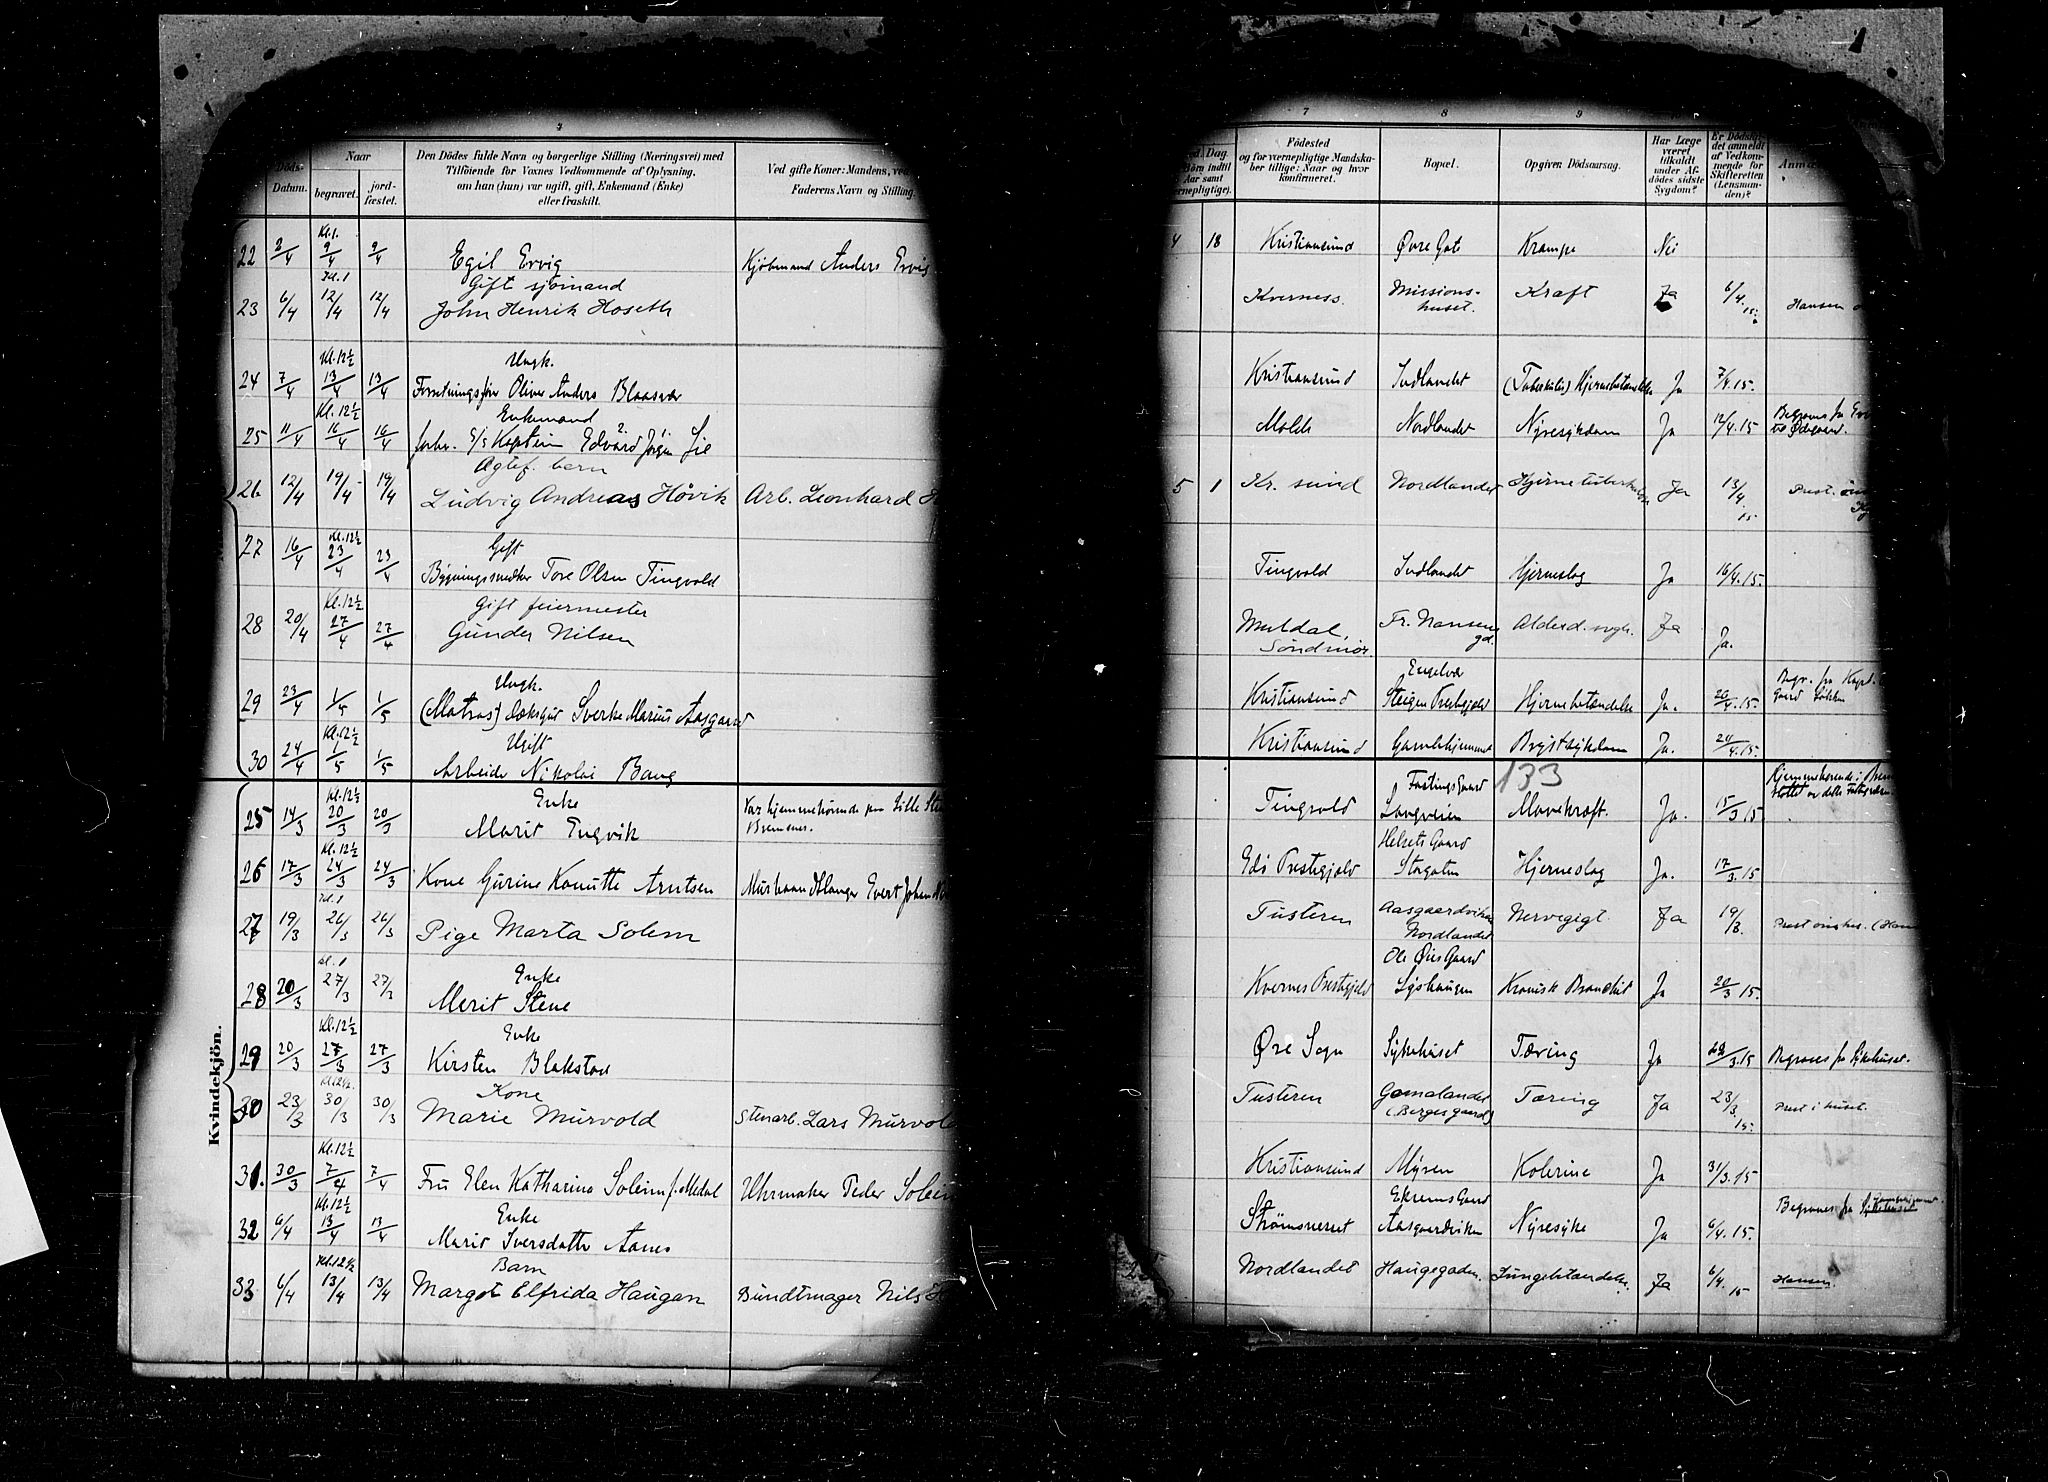 4
Döds-
Datum.
Naar
begravet.
jord-
fæstet.
Den Dödes fulde Navn og borgerlige Stilling (Næringsvei) med
Tilföiende for Voxnes Vedkommende af Oplysning,
om han (hun) var ugift, gift, Enkemand (Enke)
eller fraskilt.
Ved gifte Koner: Mandens, ved
Faderens Navn og Stilling.
Kl. 1
22 3/4 9/4 9/4 Egil Ervig Kjöbmand Anders Ervig
Kl. 1 Gift sjömand
23 6/4 12/4 12/4 John Henrik Hoseth
Kl. 12½ Ungk.
24 7/4 13/4 13/4 Forretningsfører Oliver Anders Blaasvær
Kl. 12½ Enkemand
25 11/4 16/4 16/4 forhv. S/S Kaptein Edvard Jørgen Lie
Ægtef. barn
26 12/4 19/4 19/4 Ludvig Andreas Hövik Arb. Leonhard
Kl. 12½ Gift
27 16/4 23/4 23/4 Bygningssnedker Tore Olsen Tingvold
Kl. 12½ Gift feiermester
28 20/4 27/4 27/4 Gunder Nilsen
Ungk.
29 23/4 1/5 1/5 (Matros) Sverke Marius Aasgaard
Kl. 12½ Ugift
30 24/4 1/5 1/5 Arbeider Nikolai Bang
Kvindekjön.
Kl. 12½ Enke
25 14/3 20/3 20/3 Marit Engvik Var hjemmehørende paa Lille
Bremsnes.
Kl. 12½
26 17/3 24/3 24/3 Kone Gurine Knutte Arntsen Evert Johan
Kl. 1
27 19/3 26/3 26/3 Pige Marta Solem
Kl. 1 Enke
28 20/3 27/3 27/3 Merit Stene
Kl. 12½ Enke
29 20/3 27/3 27/3 Kirsten Blakstad
Kl. 12½. Kone
30 23/3 30/3 30/3 Marie Murvold Stenarb. Lars Murvold
Kl. 12½
31. 30/3 7/4 7/4 Fru Elen Katharina Soleim f. Medal Uhrmaker Peder Soleim
Kl. 12½ Enke
32 6/4 13/4 13/4 Marit Sversdatter Aanes
Kl. 12½ Barn
33 6/4 13/4 13/4 Margot Elfrida Haugan Bundtmager Nils
7
8
9
Dag
indtil
Aar samt
Födested
og for værnepligtige Mandska-
ber tillige: Naar og hvor
konfirmeret.
Bopæl.
Opgiven Dödsaarsag.
Har Læge
været
tilkaldt
under Af-
dödes sidste
Sygdom?
Er Dödsfal-
det anmeldt
af Vedkom-
mende for
Skifteretten
(Lensman-
den)?
4 18 Kristiansund Øvre Gate Krampe Nei
Kverness. Missions-
huset. Kraft Ja 6/4 15. Hansen
Kristiansund Indlandet (Tuberkuløs) Hjernebetændelse Ja 7/4. 15.
Molde Nordlandet Nyresykdom Ja 12/4. 15
5 1 Kr. sund Nordlandet Hjernetuberkulose Ja 13/4 15 Prest.
Tingvold Indlandet Hjerneslag Ja 16/4. 15.
Muldal,
Söndmör. Fr. Nansens
gd. Alderd. svgh. Ja Ja.
Kristiansund Engelvær
Steigen Prestegjeld Hjernebetændelse Ja. 26/4. 15.
Kristiansund Gamlehjemmet Brystsykdom Ja. 24/4. 15.
133
Tingvold Fastings Gaard
Langveien Mavekræft. Ja. 15/3 15
Edö Prestegjeld Helsets Gaard
Storgaten Hjerneslag Ja. 17/3. 15
Tusteren Aasgaardviken
Nordlandet Nervegigt. Ja 19/3. Prest önskes.
Kvernes Prestegjeld Ole Øies Gaard
Lyshaugen Kronisk Bronchit Ja 20/3 15.
Øre Sogn Sykehuset Tæring Ja 22/3. 15 Begraves fra Sykehuset.
Tusteren Gomalandet
(Berges gaard) Tæring Ja 23/3. 15. Prest i huset.
Kristiansund Myren Kolerine Ja 31/3. 15
Strømsneset Ekrems Gaard
Aasgaardviken Nyresyke Ja 6/4. 15. Begraves fra
Nordlandet Haugegaden. Lungebetændelse Ja 6/4. 15 Hansen.